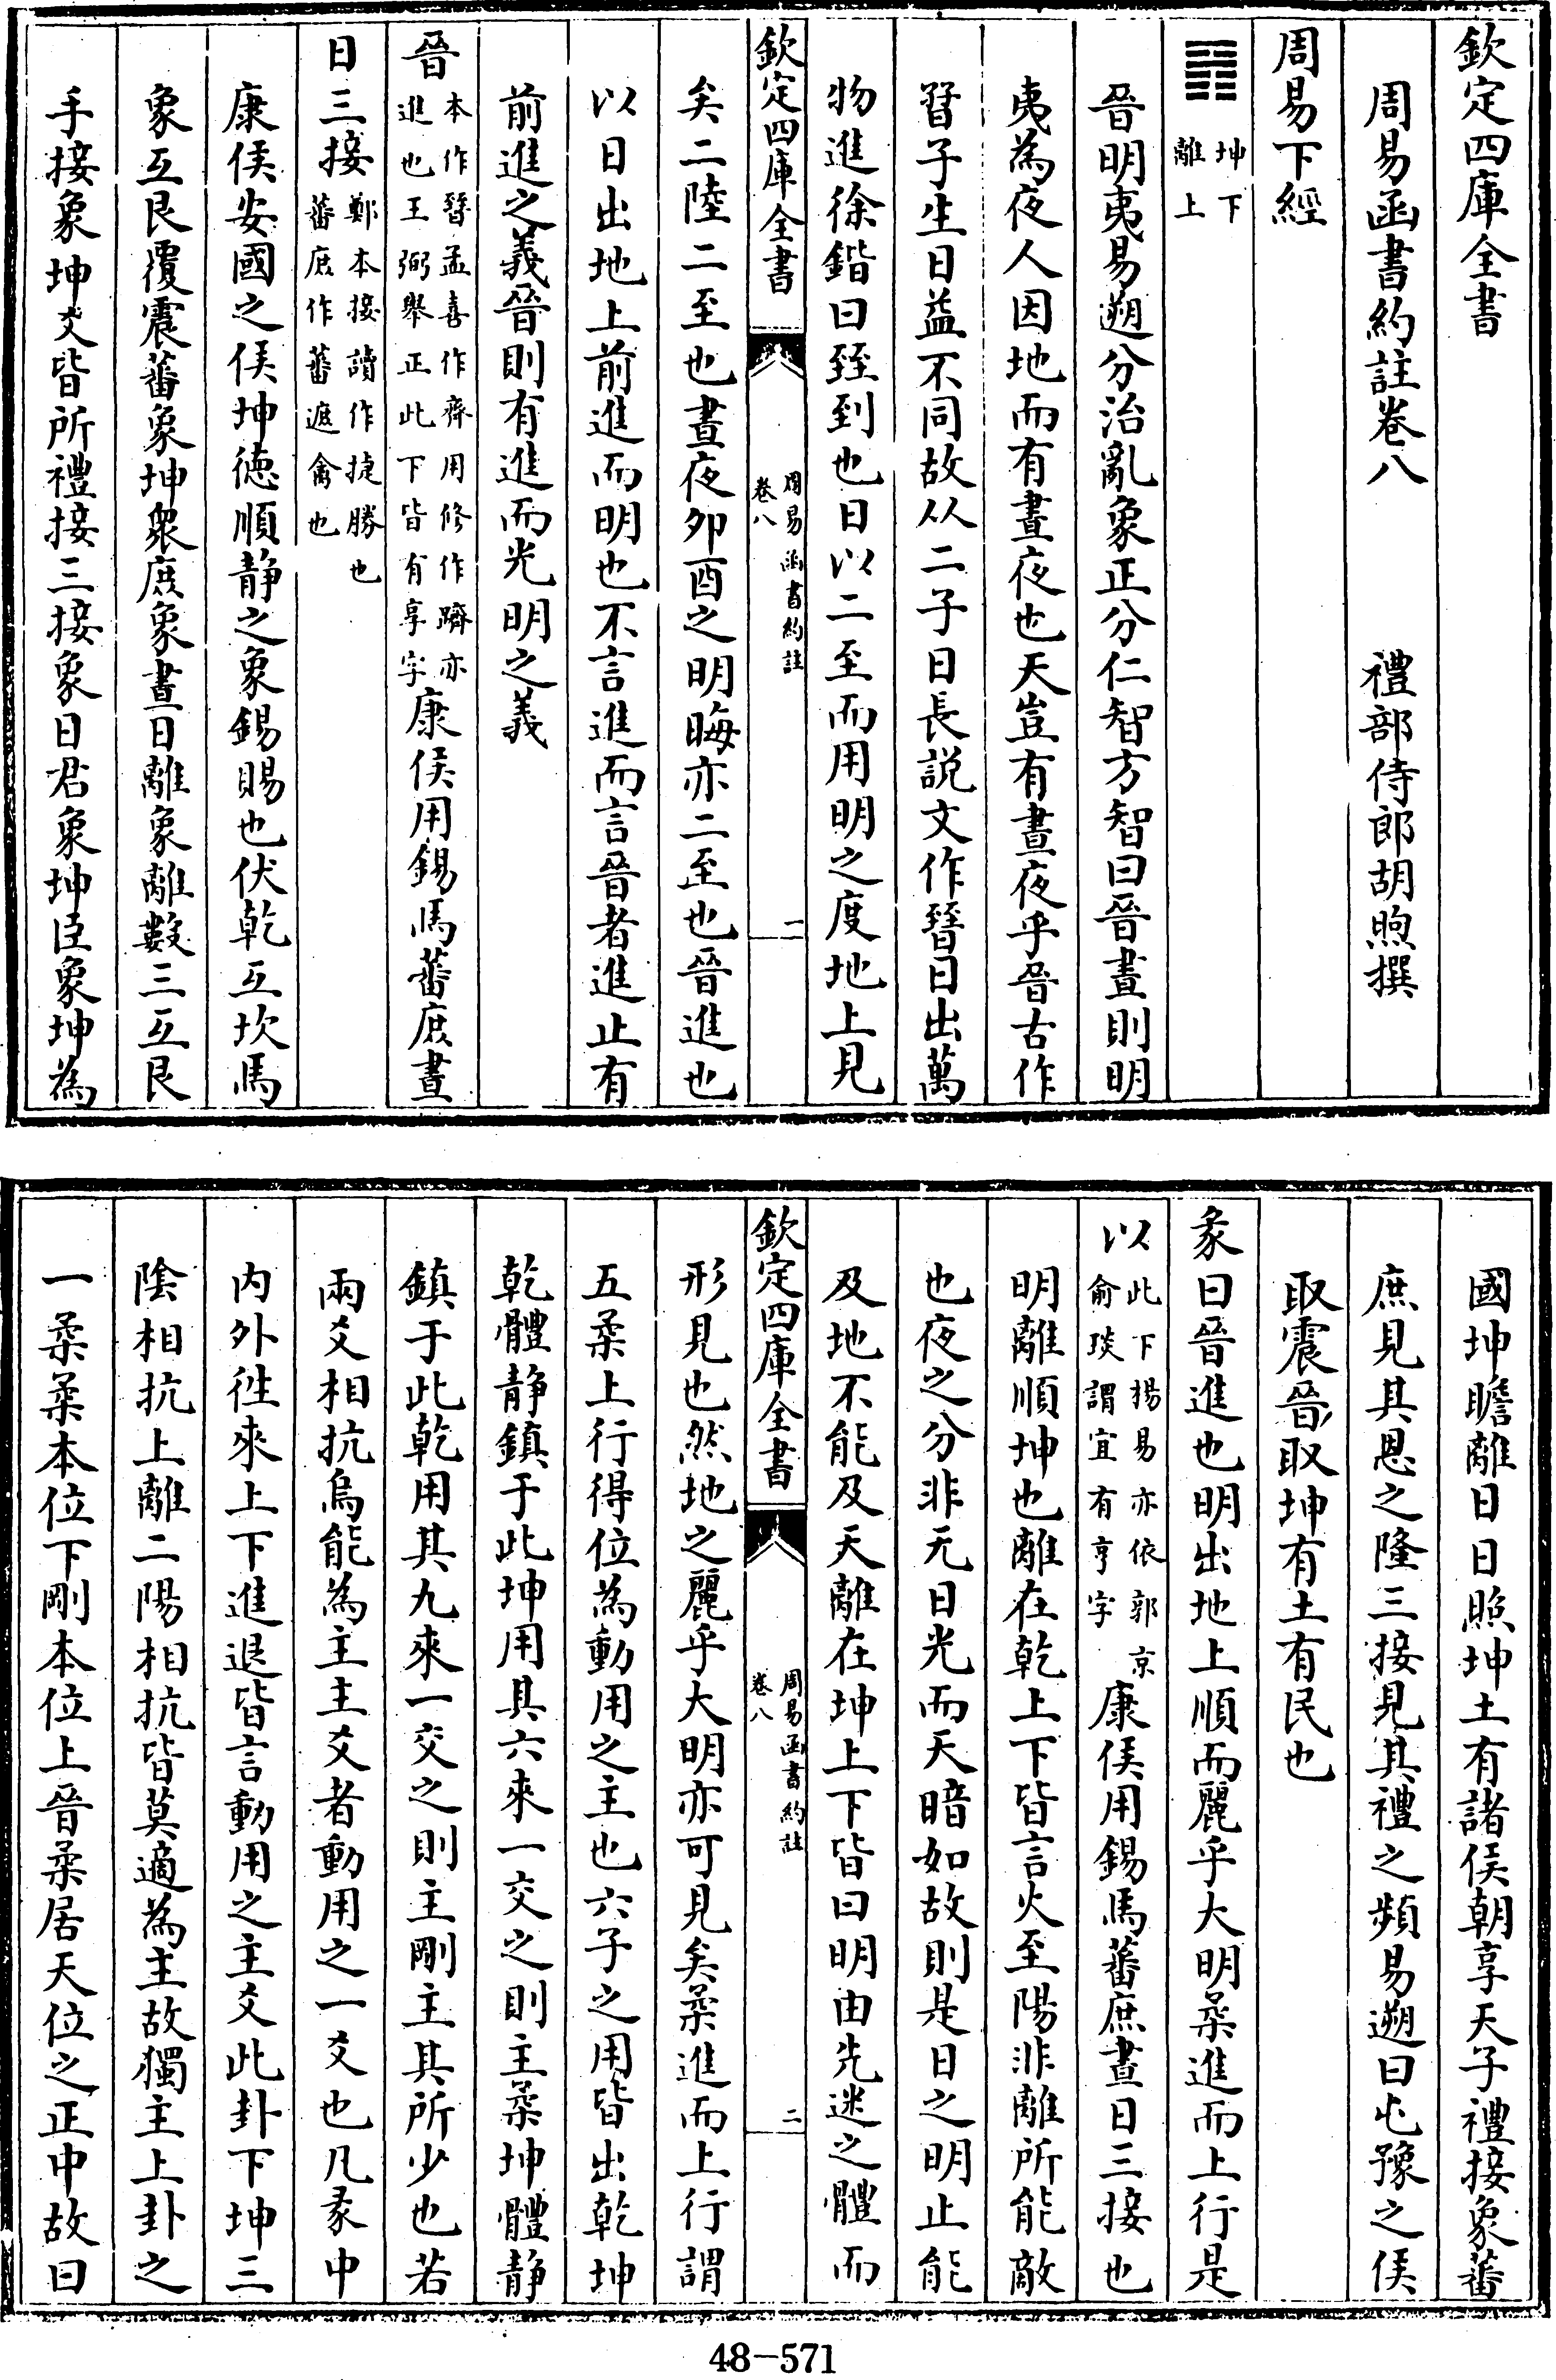 欽定四庫全書
周易函書約註卷八　　禮部侍郎胡煦撰
周易下經
䷢坤下離上
晉明夷易遡分治亂象正分仁智方智曰晉晝則明
夷為夜人因地而有晝夜也天豈有晝夜乎晉古作
晉子生日益不同故从二子日長説文作晉日出萬
物進徐鍇曰臸到也日以二至而用明之度地上見
欽定四庫全書
周易函書約註
卷八
一
矣二陸二至也晝夜卯酉之明晦亦二至也晉進也
以日出地上前進而明也不言進而言晉者進止有
前進之義晉則有進而光明之義
晉本作晉孟喜作齊用修作躋亦進也王弼舉正此下皆有享字康侯用錫馬蕃庶晝
日三接鄭本接讀作捷勝也蕃庶作蕃遮禽也
康侯安國之侯坤德順静之象錫賜也伏乾互坎馬
象互艮覆震蕃象坤衆庶象晝日離象離數三互艮
手接象坤爻皆所禮接三接象日君象坤臣象坤為
國坤瞻離日日照坤土有諸侯朝享天子禮接象蕃
庶見其恩之隆三接見其禮之頻易遡曰屯豫之侯
取震晉取坤有土有民也
彖曰晉進也明出地上順而麗乎大明柔進而上行是
以此下揚易亦依郭京俞琰謂宜有亨字康侯用錫馬蕃庶晝日三接也
明離順坤也離在乾上下皆言火至陽非離所能敵
也夜之分非无日光而天暗如故則是日之明止能
及地不能及天離在坤上下皆曰明由先迷之體而
欽定四庫全書
周易函書約註
卷八
二
形見也然地之麗乎大明亦可見矣柔進而上行謂
五柔上行得位為動用之主也六子之用皆出乾坤
乾體静鎮于此坤用具六來一交之則主柔坤體静
鎮于此乾用其九來一交之則主剛主其所少也若
兩爻相抗烏能為主主爻者動用之一爻也凡彖中
内外徃來上下進退皆言動用之主爻此卦下坤三
陰相抗上離二陽相抗皆莫適為主故獨主上卦之
一柔柔本位下剛本位上晉柔居天位之正中故曰
48-571